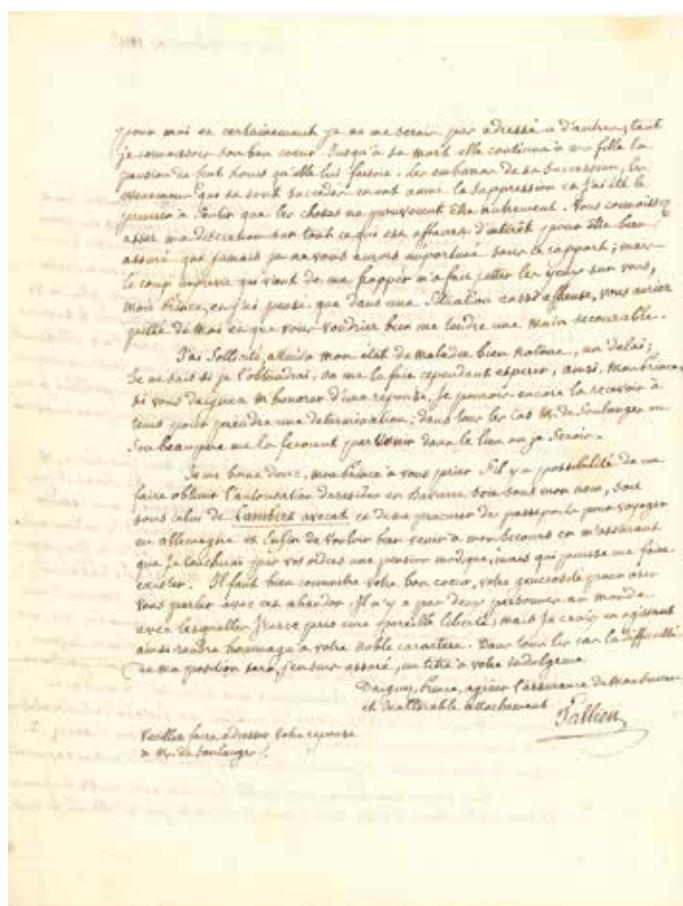 pour moi et certainement je ne me serois pas adressé à d'autres, tant
je connoissois son bon coeur. Jusqu'à sa mort elle continua à ma fille la
pension de cent Louis qu'elle lui faisoit. Les embarras de sa Succession, les
evenemens qui se sont succédés en ont amené la suppression et j'ai été le
premier à sentir que les choses ne pouvoient être autrement. Vous connoissez
assez ma discretion sur tout ce qui est affaires d'intérêt pour être bien
assuré que jamais je ne vous aurois importuné sous ce rapport; mais
le coup imprévu qui vient de me frapper m'a fait jetter les yeux sur vous,
mon Prince, et j'ai pensé que dans une Situation aussi affreuse, vous auriez
pitié de moi et que vous voudriez bien me tendre une main secourable.
J'ai Sollicité, attendu mon état de maladie bien notoire, un delai;
Je ne sais si je l'obtiendrai, on me le fait cependant espérer, ainsi, mon Prince,
si vous daignez m'honorer d'une reponse, Je pourrois encore la recevoir à
tems pour prendre une determination; dans tous les cas Mr. de Soulanges ou
Son beaupère me la feroient parvenir dans le lieu où je Serois.
Je me borne donc, mon Prince à vous prier s'il y a possibilité de me
faire obtenir l'autorisation de resider en Baviere soit sous mon nom, soit
sous celui de Lambert avocat et de me procurer des passeports pour voyager
en allemagne et Enfin de vouloir bien venir à mon Secours en m'assurant
que je toucherai par vos ordres une pension modique, mais qui puisse me faire
exister. Il faut bien connoitre votre bon coeur, votre generosité pour oser
vous parler avec cet abandon. Il n'y a pas deux personnes au monde
avec lesquelles J'eusse pris une pareille liberté; mais Je crois en agissant
ainsi rendre hommage à votre noble caractère. Dans tous les cas la difficulté
de ma position sera, j'en suis assuré, un titre à votre indulgence
Daignez, Prince, agréer l'assurance de mon
et inalterable attachement
Tallien
Veuillez faire adresser votre reponse
à Mr. de Soulanges.